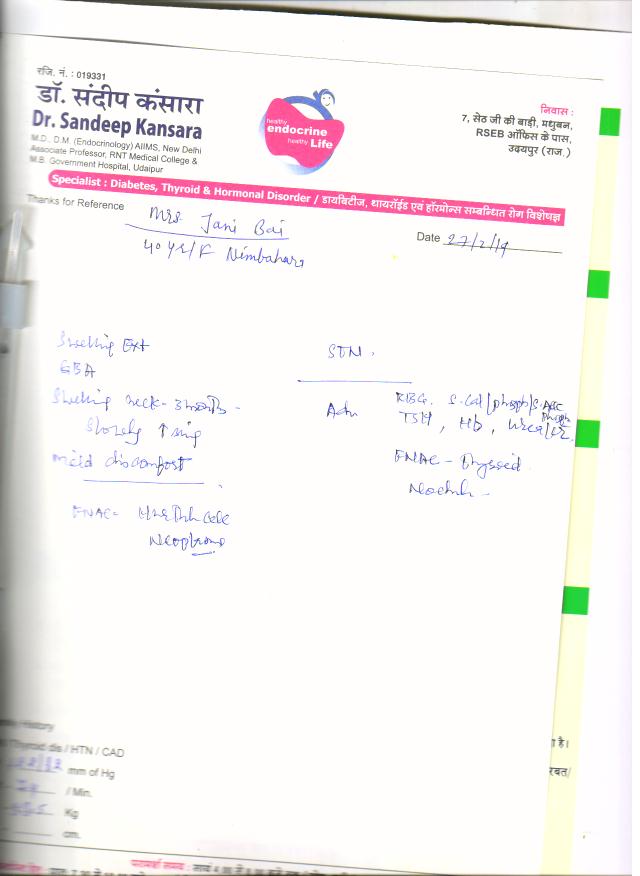 रजि. नं. : 019331
डॉ. संदीप कंसारा
Dr. Sandeep Kansara
M.D., D.M. (Endocrinology) AIIMS, New Delhi
Associate Professor, RNT Medical College &
M.B. Government Hospital, Udaipur
healthy
endocrine
healthy Life
निवास :
7, सेठ जी की बाड़ी, मधुबन,
RSEB ऑफिस के पास,
उदयपुर (राज.)
Specialist : Diabetes, Thyroid & Hormonal Disorder / डायबिटीज, थायरॉईड एवं हॉरमोन्स सम्बन्धित रोग विशेषज्ञ
Thanks for Reference
Mrs Jani Bai
40 yr/F
Date 27/2/19
Swelling Ext
GBA
Swelling neck - 3 months -
Slowly ↑ sing
mild discomfort
FNAC - Hurthle cell
STN.
Adv
RBG. S. Cal/phosph/S.
TSH, Hb, Urea/cr.
FNAC - Thyroid
History
Thyroid dis / HTN / CAD
mm of Hg
/ Min.
Kg
cm.
है।
परामर्श समय : सायं